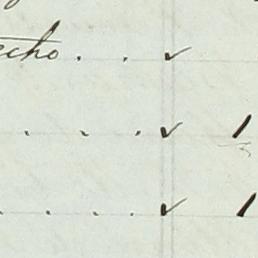 echo . . ✓
. . . ✓ 1
. . . . ✓ 1